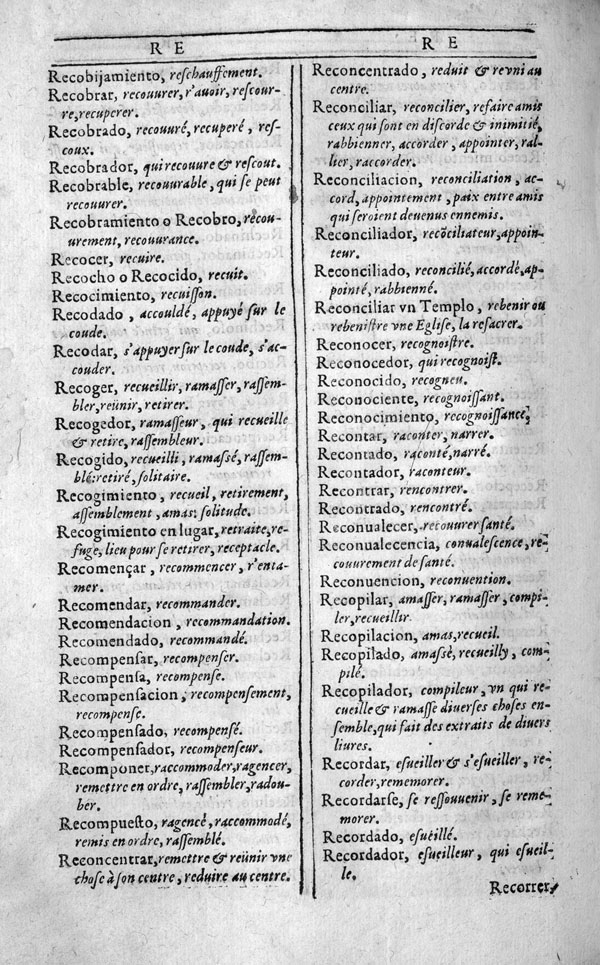 R E
Recobijamiento, reſchauffement.
Recobrar, recouurer, r'auoir, reſcour-
re, recuperer.
Recobrado, recouuré, recuperé, reſ-
coux.
Recobrador, qui recouure & reſcout.
Recobrable, recouurable, qui ſe peut
recouurer.
Recobramiento o Recobro, recou-
urement, recouurance.
Recocer, recuire.
Recocho o Recocido, recuit.
Recocimiento, recuiſſon.
Recodado, accouldé, appuyé ſur le
coude.
Recodar, s'appuyer ſur le coude, s'ac-
couder.
Recoger, recueillir, ramaſſer, raſſem-
bler, reünir, retirer.
Recogedor, ramaſſeur, qui recueille
& retire, raſſembleur.
Recogido, recueilli, ramaſſé, raſſem-
blé: retiré, ſolitaire.
Recogimiento, recueil, retirement,
aſſemblement, amas: ſolitude.
Recogimiento en lugar, retraite, re-
fuge, lieu pour ſe retirer, receptacle.
Recomençar, recommencer, r'enta-
mer.
Recomendar, recommander.
Recomendacion, recommandation.
Recomendado, recommandé.
Recompenſar, recompenſer.
Recompenſa, recompenſe.
Recompenſacion, recompenſement,
recompenſe.
Recompenſado, recompenſé.
Recompenſador, recompenſeur.
Recomponer, raccommoder, ragencer,
remettre en ordre, raſſembler, radou-
ber.
Recompueſto, ragencé, raccommodé,
remis en ordre, raſſemblé.
Reconcentrar, remettre & reünir vne
choſe à ſon centre, reduire au centre.
R E
Reconcentrado, reduit & revni au
centre.
Reconciliar, reconcilier, refaire amis
ceux qui ſont en diſcorde & inimitié,
rabbienner, accorder, appointer, ral-
lier, raccorder.
Reconciliacion, reconciliation, ac-
cord, appointement, paix entre amis
qui ſeroient deuenus ennemis.
Reconciliador, recõciliateur, appoin-
teur.
Reconciliado, reconcilié, accordé, ap-
pointé, rabbienné.
Reconciliar vn Templo, rebenir ou
rebeniſtre vne Egliſe, la reſacrer.
Reconocer, recognoiſtre.
Reconocedor, qui recognoiſt.
Reconocido, recogneu.
Reconociente, recognoiſſant.
Reconocimiento, recognoiſſance,
Recontar, raconter, narrer.
Recontado, raconté, narré.
Recontador, raconteur.
Recontrar, rencontrer.
Recontrado, rencontré.
Reconualecer, recouurer ſanté.
Reconualecencia, conualeſcence, re-
couurement de ſanté.
Reconuencion, reconuention.
Recopilar, amaſſer, ramaſſer, compi-
ler, recueillir.
Recopilacion, amas, recueil.
Recopilado, amaſſè, recueilly, com-
pilé.
Recopilador, compileur, vn qui re-
cueille & ramaſſe diuerſes choſes en-
ſemble, qui fait des extraits de diuers
liures.
Recordar, eſueiller & s'eſueiller, re-
corder, rememorer.
Recordarſe, ſe reſſouuenir, ſe reme-
morer.
Recordado, eſueillé.
Recordador, eſueilleur, qui eſueil-
le.
Recorrer,